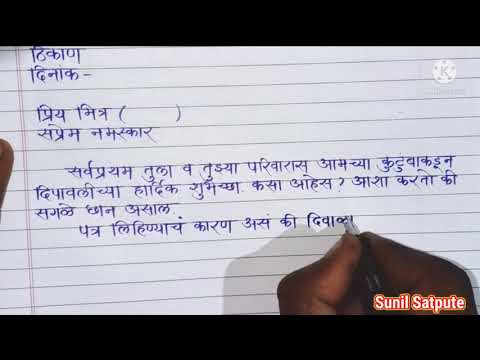 ठिकाण
दिनांक -
प्रिय मित्र (       )
सप्रेम नमस्कार
सर्वप्रथम तुला व तुझ्या परिवारास आमच्या कुटुंबाकडून
दिपावलीच्या हार्दिक शुभेच्छा. कसा आहेस? आशा करतो की
सगळे छान असाल.
पत्र लिहिण्याचं कारण असं की
Sunil Satpute